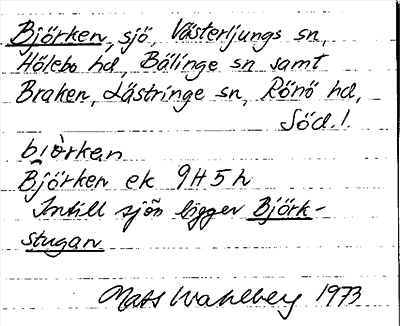 Björken, sjö, Västerljungs sn,
Hölebo hd, Bälinge sn samt
Braken, Lästringe sn, Rönö hd,
Söd.!
biòrkan
Björken ek 9H5h
Intill sjön ligger Björk-
stugan
Mats Wahlberg 1973